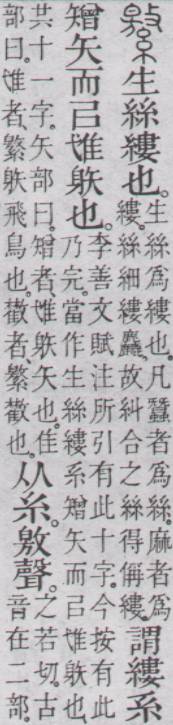 𦅾生絲縷也。生絲爲縷也。凡蠶者爲絲。麻者爲縷。絲細縷麤。故糾合之絲得偁縷。謂縷系
矰矢而㠯隿䠶也。李善文賦注所引有此十字。今按有此乃完。當作生絲縷系矰矢而㠯隿䠶也
共十一字。矢部曰。矰者、隿䠶矢也。隹部曰。隿者、𦅾䠶飛鳥也。𢿱者、𦅾𢿱也。从糸。敫聲。之若切。古音在二部。